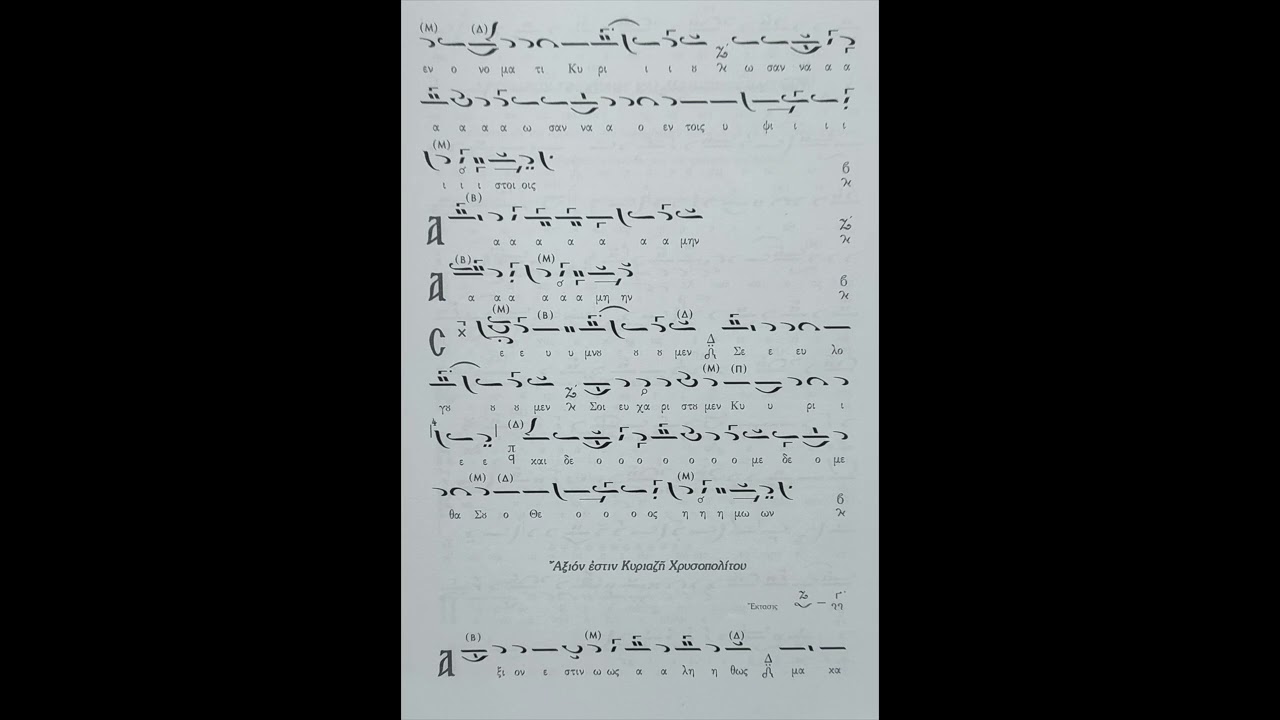 (Μ) (Δ)
εν ο νο μα τι Κυ ρι ι ι ȣ ω σαν να α α
α α α α ω σαν να α ο εν τοις υ ψι ι ι ι
(Μ)
ι ι ι στοι οις
(Β)
Α α α α α α α α μην
(Β) (Μ)
Α α α α α α α μη ην
(Μ) (Β) (Δ)
С ε ε υ υ μνȣ ȣ ȣ μεν Σε ε ευ λο
γȣ ȣ ȣ μεν Σοι ευ χα ρι στȣ μεν Κυ υ ρι ι
(Μ) (Π)
(Δ)
ε ε και δε ο ο ο ο ο ο ο ο με δε ο με
(Μ) (Δ) (Μ)
θα Σȣ ο Θε ο ο ο ος η η η μω ων
Ἄξιόν ἐστιν Κυριαζῆ Χρυσοπολίτου
Ἔκτασις
(Β) (Μ) (Δ)
Α ξι ον ε στιν ω ως α α λη η θως μα κα